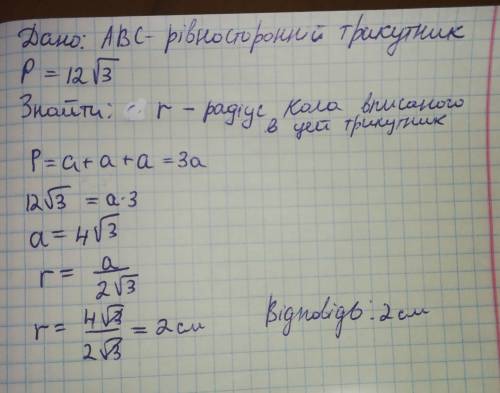 Дано: ABC - рівносторонній трикутник
P = 12√3
Знайти: r - радіус кола вписаного
в цей трикутник
P = a + a + a = 3a
12√3 = a·3
a = 4√3
r = a/2√3
r = 4√3/2√3 = 2 см
Відповідь: 2 см